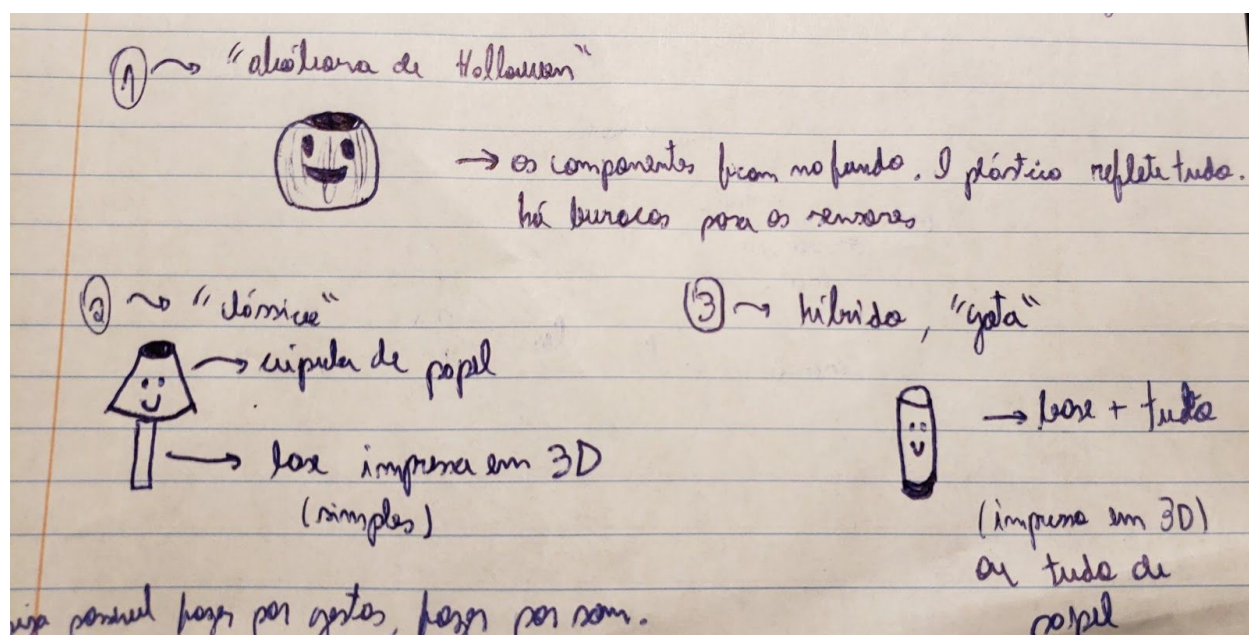 1 "abóbora de Halloween"
→ os componentes ficam no fundo. O plástico reflete tudo.
há buracos para os sensores
2 "clássico"
→ cúpula de papel
→ base impressa em 3D
(simples)
3 híbrido, "gota"
→ base + tudo
(impresso em 3D)
ou tudo de
papel
possível fazer por gestos, fazer por som.